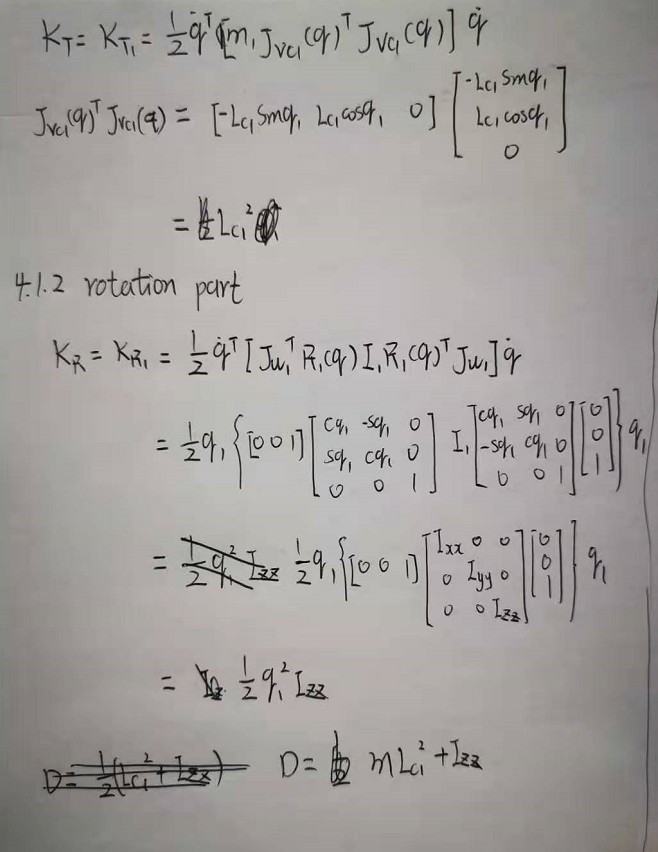 K_T = K_T₁ = 1/2 q̇ᵀ [m₁ J_vc₁(q)ᵀ J_vc₁(q)] q̇
J_vc₁(q)ᵀ J_vc₁(q) = [-Lc₁ sinq₁ Lc₁cosq₁ 0] [-Lc₁ sinq₁; Lc₁cosq₁; 0]
= Lc₁²
4.1.2 rotation part
K_R = K_R₁ = 1/2 q̇ᵀ [Jω₁ᵀ R₁(q) I₁ R₁(q)ᵀ Jω₁] q̇
= 1/2 q₁ {[0 0 1] [cq₁ -sq₁ 0; sq₁ cq₁ 0; 0 0 1] I₁ [cq₁ sq₁ 0; -sq₁ cq₁ 0; 0 0 1] [0; 0; 1]} q₁
= 1/2 q₁ {[0 0 1] [Ixx 0 0; 0 Iyy 0; 0 0 Izz] [0; 0; 1]} q₁
= 1/2 q₁² Izz
D = mLc₁² + Izz